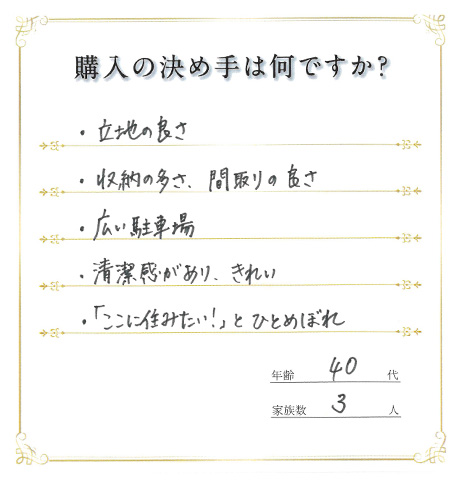 購入の決め手は何ですか?
・立地の良さ
・収納の多さ、間取りの良さ
・広い駐車場
・清潔感があり、きれい
・「ここに住みたい!」とひとめぼれ
年齢 40 代
家族数 3 人